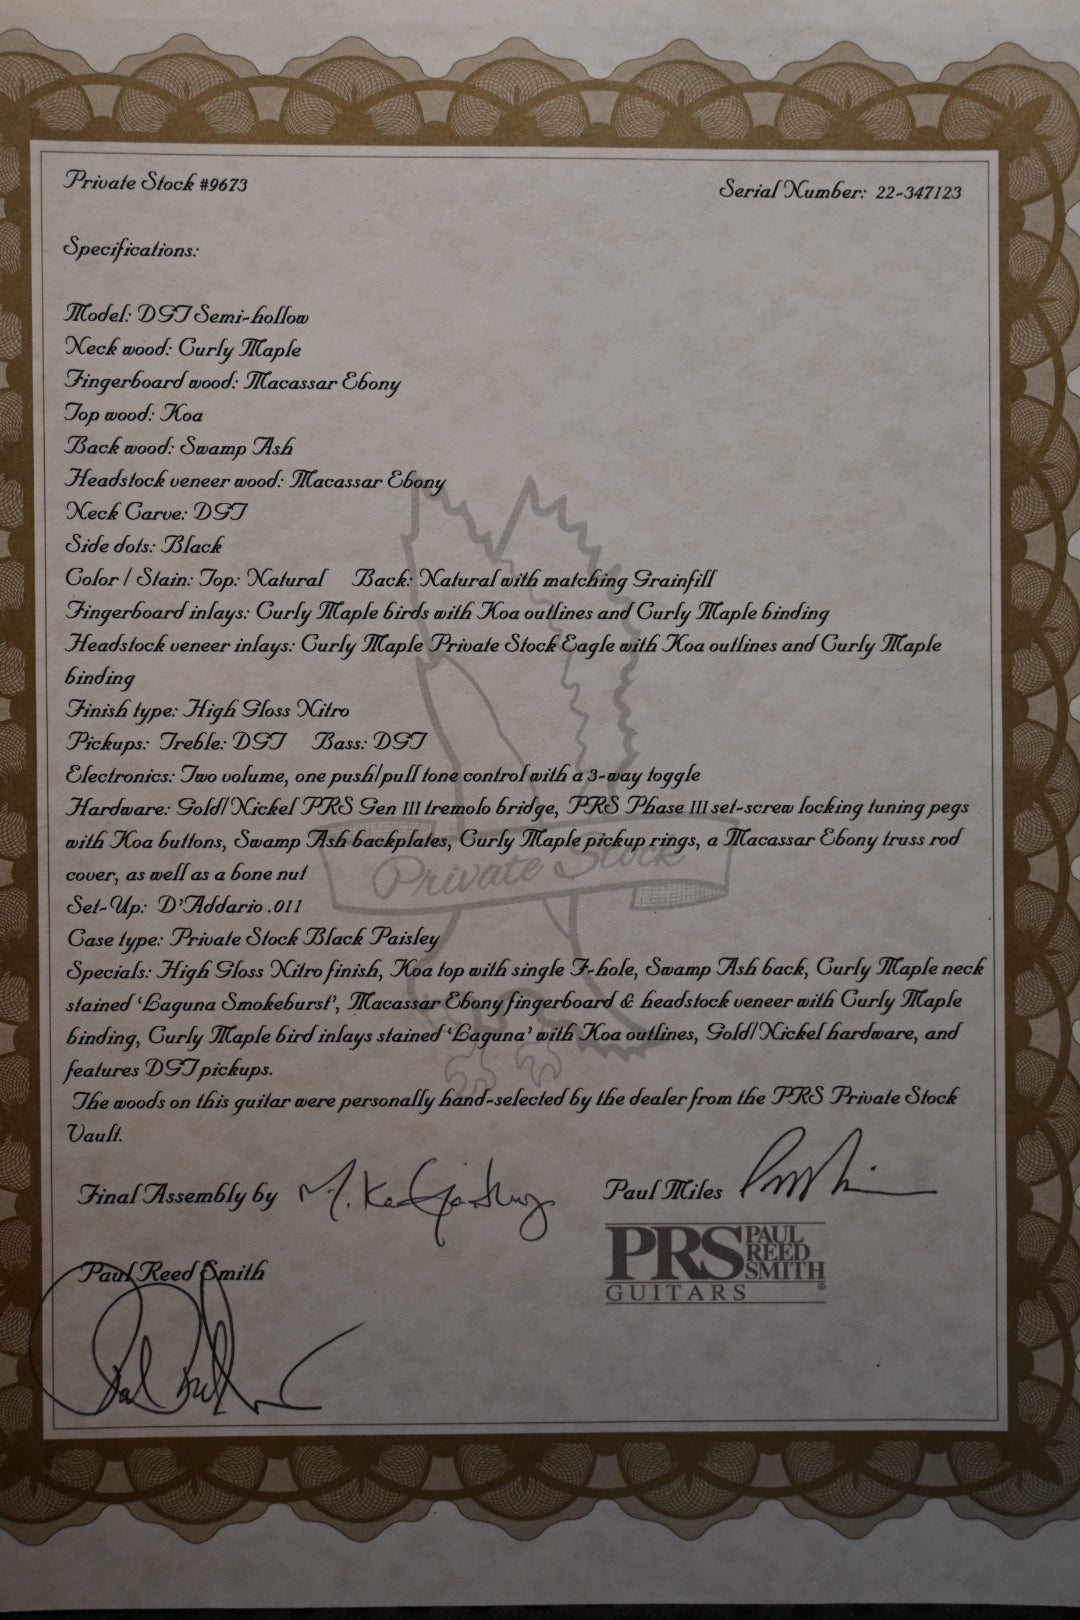 Private Stock #9673
Serial Number: 22-347123
Specifications:
Model: DGT Semi-hollow
Neck wood: Curly Maple
Fingerboard wood: Macassar Ebony
Top wood: Koa
Back wood: Swamp Ash
Headstock veneer wood: Macassar Ebony
Neck Carve: DGT
Side dots: Black
Color / Stain: Top: Natural Back: Natural with matching Grainfill
Fingerboard inlays: Curly Maple birds with Koa outlines and Curly Maple binding
Headstock veneer inlays: Curly Maple Private Stock Eagle with Koa outlines and Curly Maple
binding
Finish type: High Gloss Nitro
Pickups: Treble: DGT Bass: DGT
Electronics: Two volume, one push/pull tone control with a 3-way toggle
Hardware: Gold/Nickel PRS Gen III tremolo bridge, PRS Phase III set-screw locking tuning pegs
with Koa buttons, Swamp Ash backplates, Curly Maple pickup rings, a Macassar Ebony truss rod
cover, as well as a bone nut
Private Stock
Set-Up: D'Addario .011
Case type: Private Stock Black Paisley
Specials: High Gloss Nitro finish, Koa top with single F-hole, Swamp Ash back, Curly Maple neck
stained 'Laguna Smokeburst', Macassar Ebony fingerboard & headstock veneer with Curly Maple
binding, Curly Maple bird inlays stained 'Laguna' with Koa outlines, Gold/Nickel hardware, and
features DGT pickups.
The woods on this guitar were personally hand-selected by the dealer from the PRS Private Stock
Vault.
Final Assembly by
Paul Miles
Paul Reed Smith
PRS PAUL REED SMITH
GUITARS ®